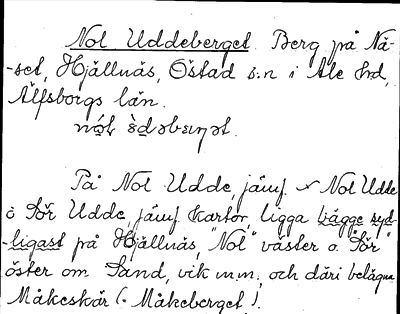 Nol Uddeberget. Berg på Nä-
-set, Hjällnäs, Östad s:n i Ale hd,
Älfsborgs län.
På Nol Udde, jämf. Nol Udde
o Sör Udde, jämf. kartor, ligga bägge syd-
-ligast på Hjällnäs, "Nol" väster o. "Sör"
öster om Sand, vik m.m., och däri belägna
Måkeskär (: Måkeberget).